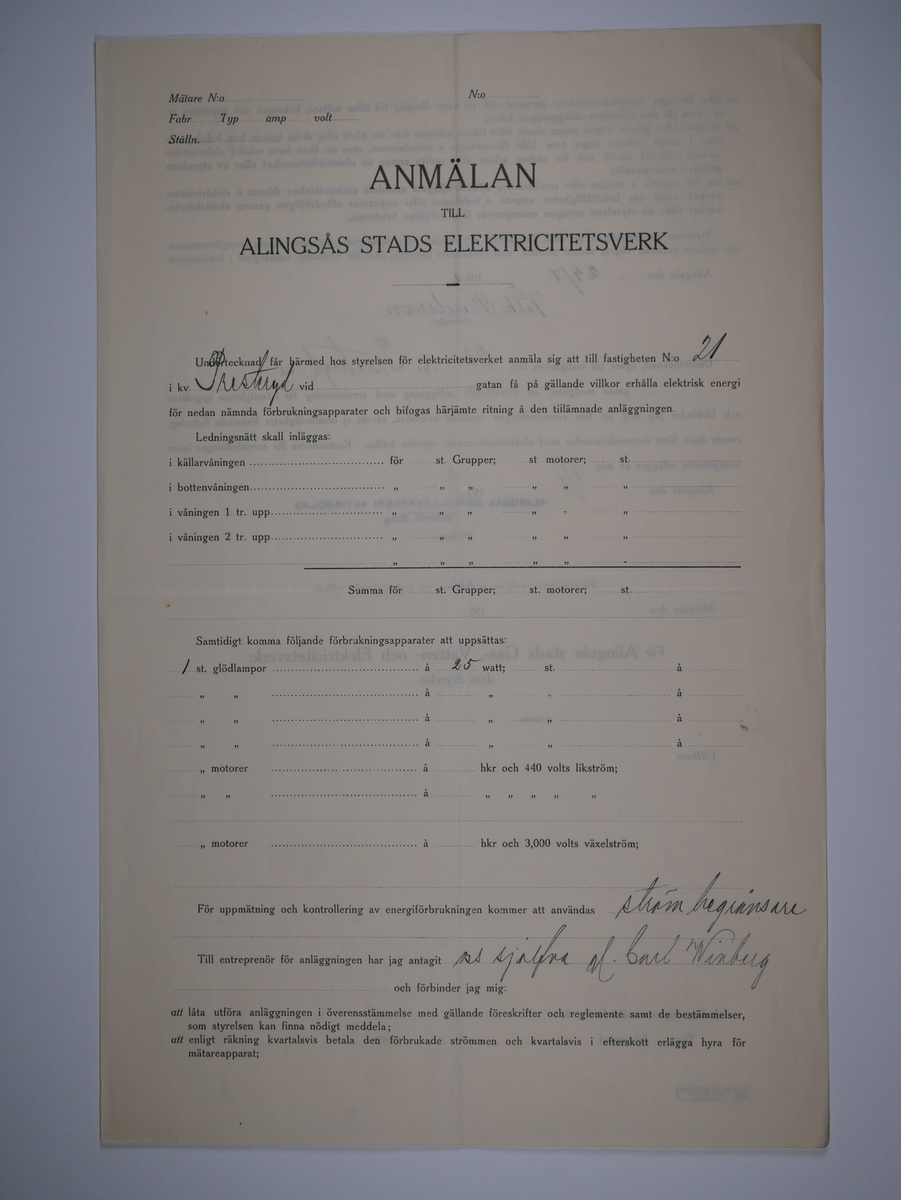 Mätare N:o N:o
Fabr. Typ amp volt
Ställn.
ANMÄLAN
TILL
ALINGSÅS STADS ELEKTRICITETSVERK
Undertecknad får härmed hos styrelsen för elektricitetsverket anmäla sig att till fastigheten N:o 21
i kv. Prestryd vid gatan få på gällande villkor erhålla elektrisk energi
för nedan nämnda förbrukningsapparater och bifogas härjämte ritning å den tillämnade anläggningen
Ledningsnätt skall inläggas:
i källarvåningen för st. Grupper; st motorer; st.
i bottenvåningen „ „ „ „ „ „
i våningen 1 tr. upp „ „ „ „ „ „
i våningen 2 tr. upp „ „ „ „ „ „
„ „ „ „ „ „
Summa för st. Grupper; st. motorer; st.
Samtidigt komma följande förbrukningsapparater att uppsättas:
1 st. glödlampor å 25 watt; st. å
„ „ å „ „ å
„ „ å „ „ å
„ „ å „ „ å
„ motorer å hkr och 440 volts likström;
„ „ å „ „ „ „ „
„ motorer å hkr och 3,000 volts växelström;
För uppmätning och kontrollering av energiförbrukningen kommer att användas ström begränsare
Till entreprenör för anläggningen har jag antagit oss sjelfva gl. Carl Winberg
och förbinder jag mig:
att låta utföra anläggningen i överensstämmelse med gällande föreskrifter och reglemente samt de bestämmelser,
som styrelsen kan finna nödigt meddela;
att enligt räkning kvartalsvis betala den förbrukade strömmen och kvartalsvis i efterskott erlägga hyra för
mätareapparat;